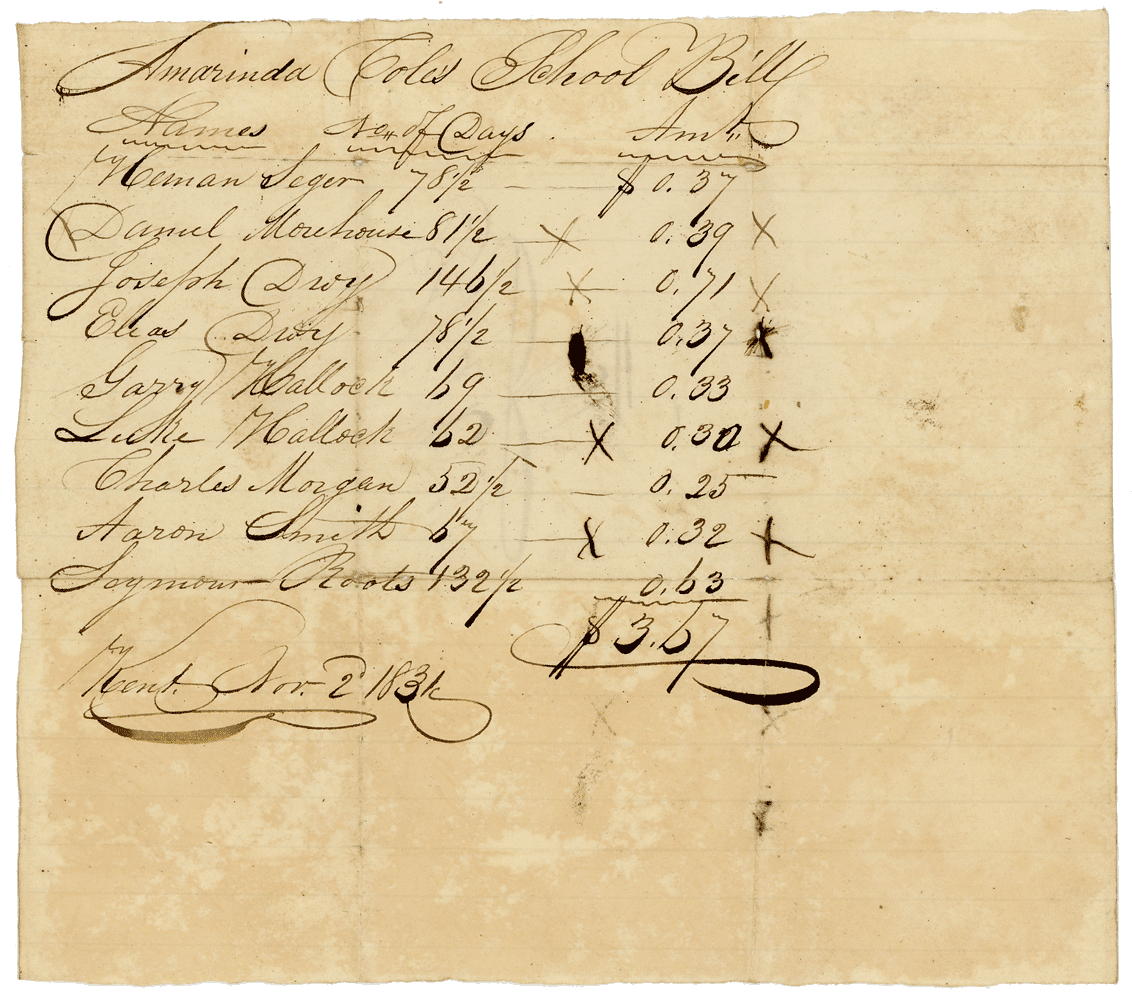 Amarinda Cole's School Bill
Names No. of Days. Amt.
Heman Seger 78 1/2 — $ 0.37
Daniel Morehouse 81 1/2 — X 0.39 X
Joseph Dwy 146 1/2 X — 0.71 X
Elias Dwy 78 1/2 — 0.37 X
Garry Hallock 69 — 0.33
Luke Hallock 62 — X 0.30 X
Charles Morgan 52 1/2 — 0.25
Aaron Smith 67 — X 0.32 X
Seymour Roots 132 1/2 0.63
$ 3.67
Kent. Nov. 2d